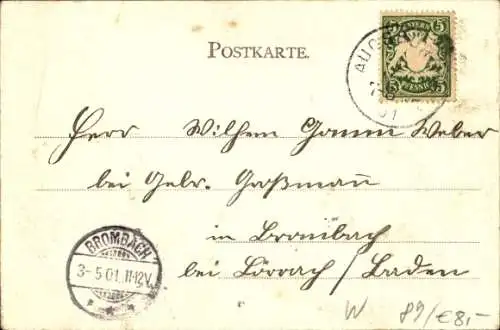 POSTKARTE.
BAYERN
5 5
PFENNIG
5 5
AUG
7-8
01
Herr Wilhem Gamm Weber
bei Gebr. Großmann
in Brombach
bei Lörrach / Baden
BROMBACH
3-5 01. 11-12V.
W 89/€8,-